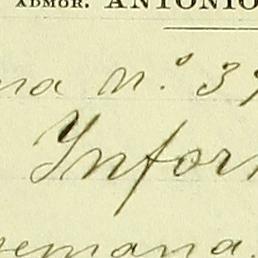 ADMOR. ANTONIO
na n.º 39
Infor
semana.